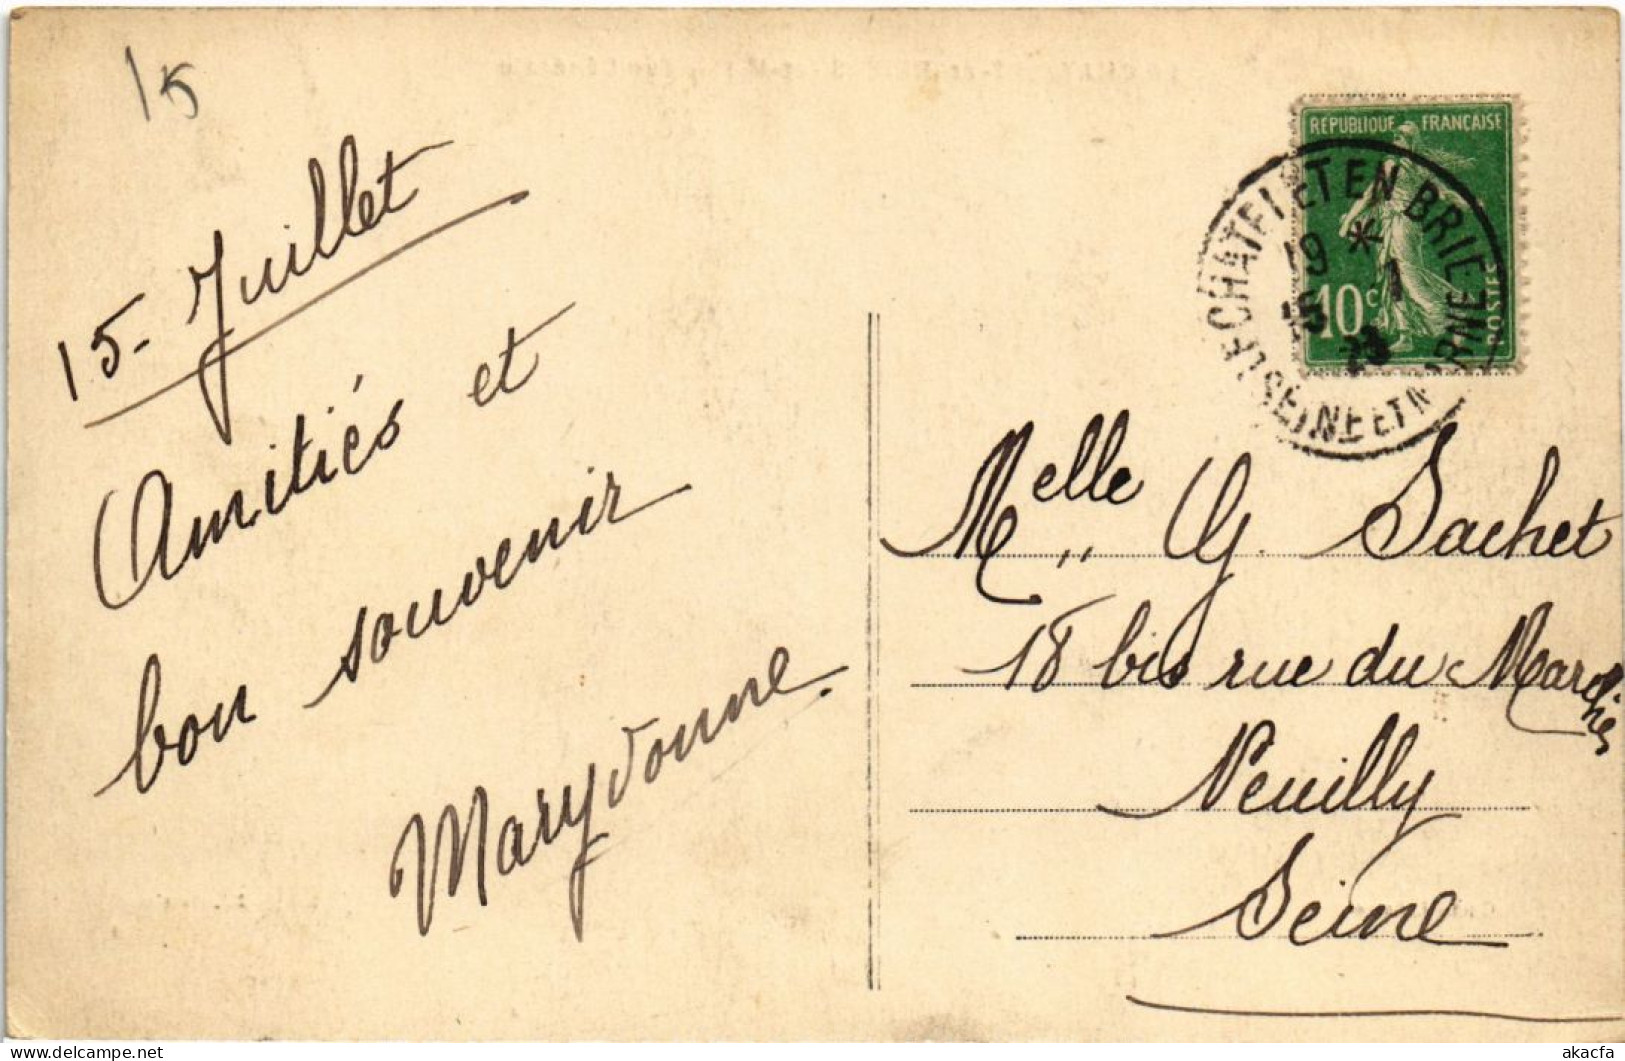 15
15 - Juillet
Amitiés et
bon souvenir
Marydonne.
REPUBLIQUE FRANÇAISE
10c
POSTES
LE CHATELET EN BRIE
19 *
15
23
SEINE ET MARNE
Melle G. Sachet
18 bis rue du Marchés
Neuilly
Seine
akacfa